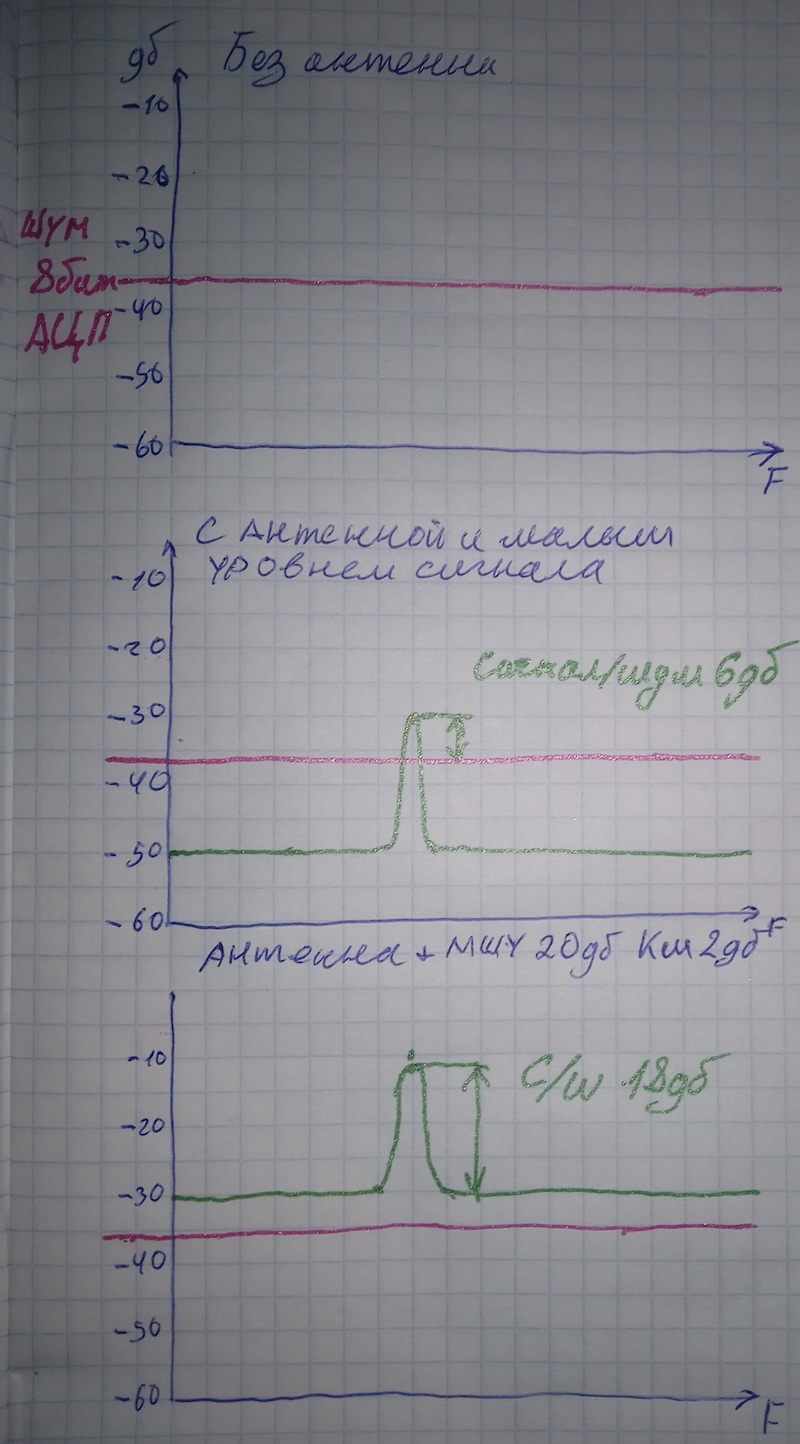 дб Без антенны
-10
-20
Шум
-30
8бит
-40
АЦП
-50
-60
F
С Антенной и малым
уровнем сигнала
-10
-20
Сигнал/шум 6дб
-30
-40
-50
-60
F
Антенна + МШУ 20дб Кш 2дб
-10
С/ш 18дб
-20
-30
-40
-50
-60
F